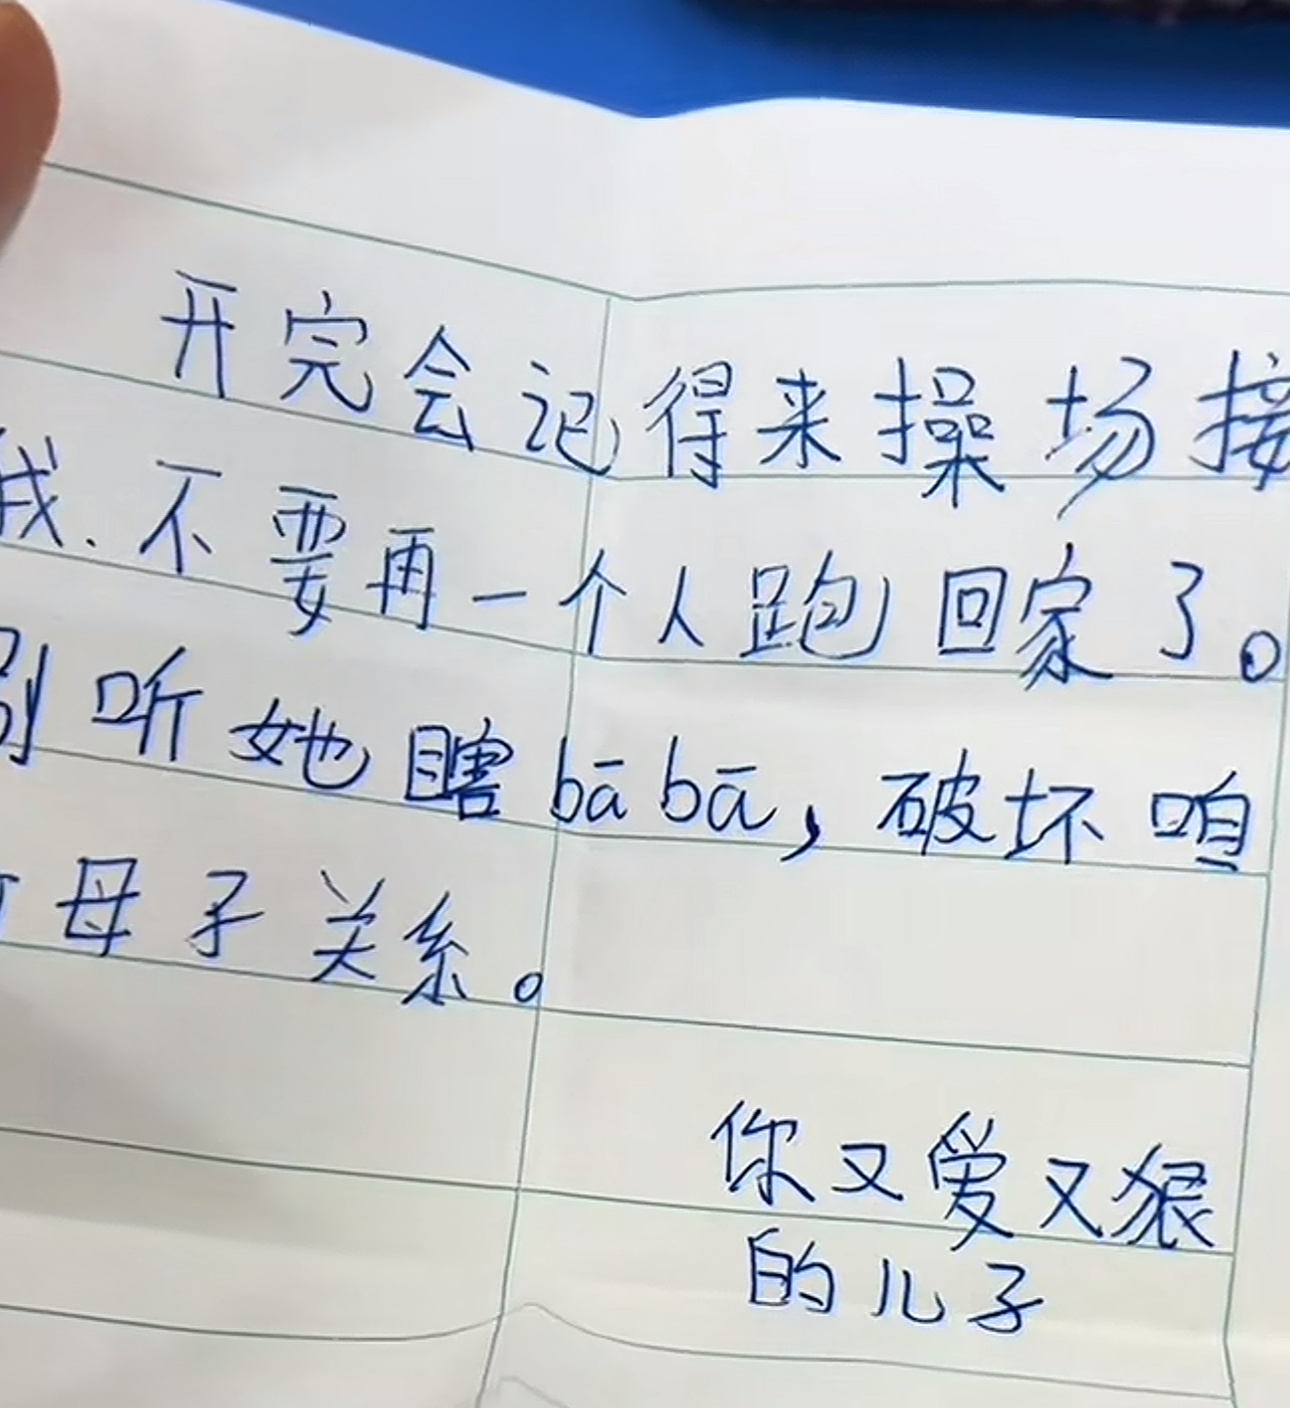 开完会记得来操场接
我.不要再一个人跑回家了。
别听她瞎bā bā,破坏咱
们母子关系。
你又爱又狠
的儿子